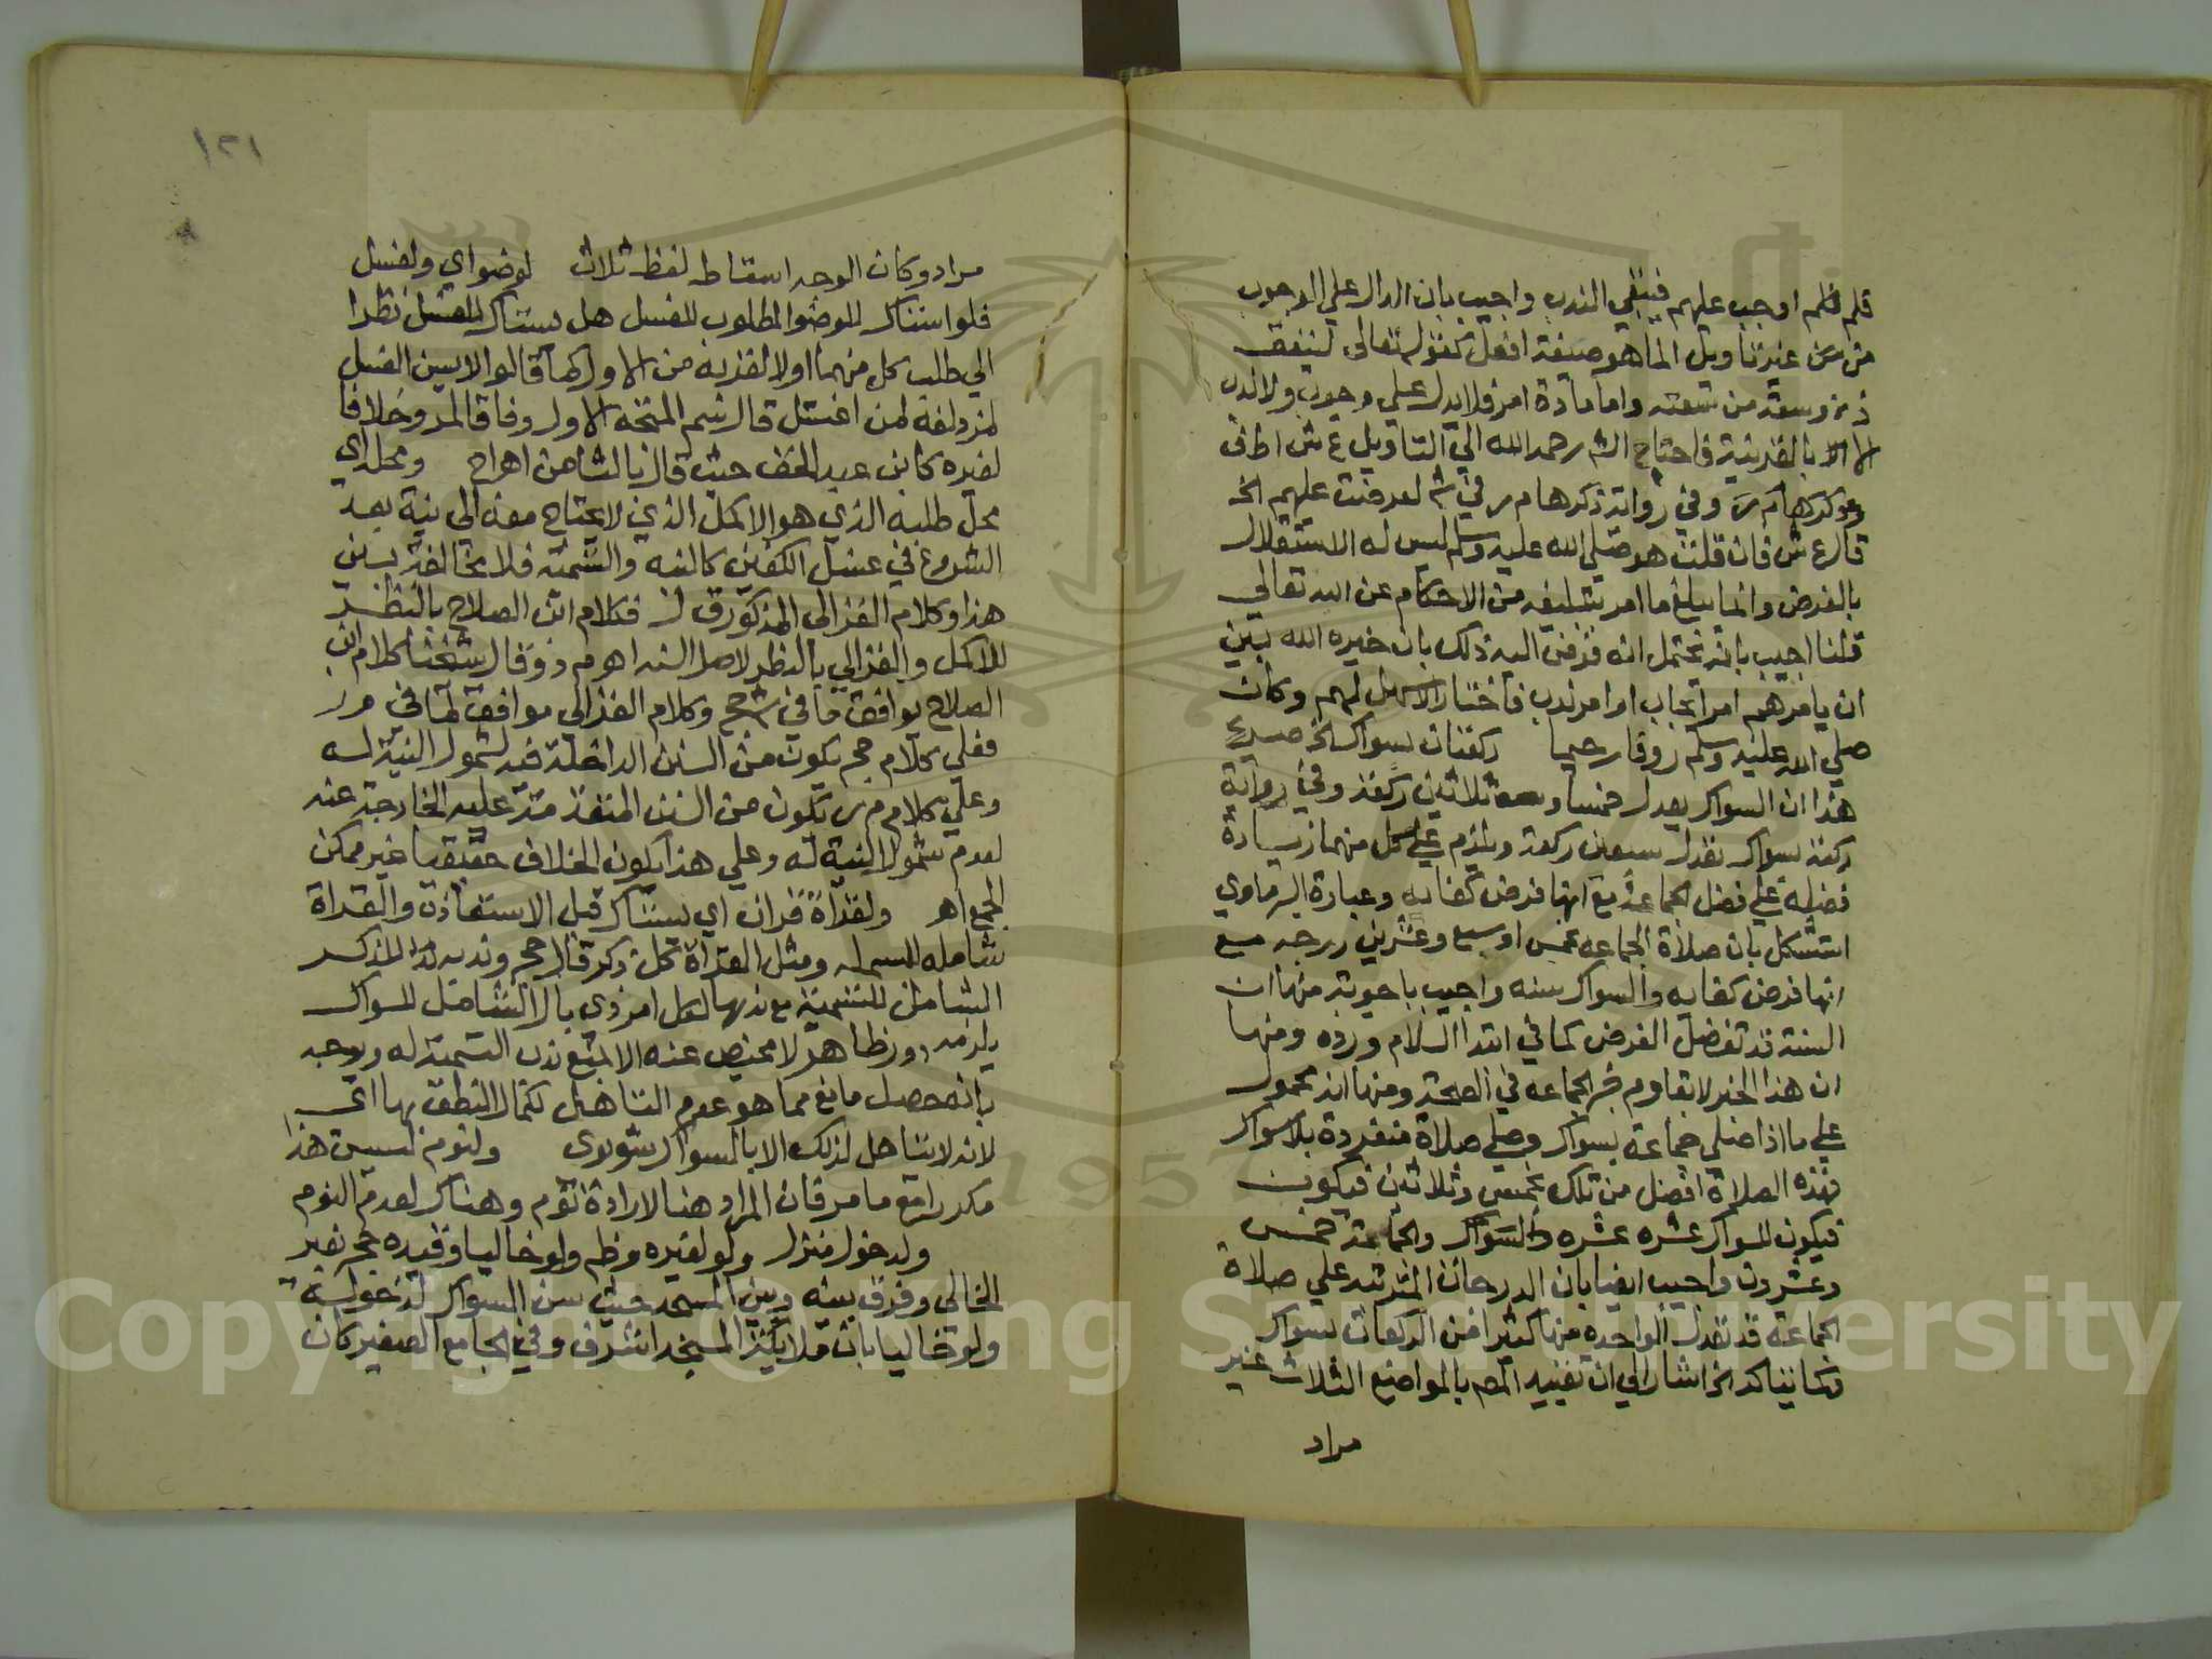 قلم فلم اوجب عليهم فينتفي الندب واجيب بان الدال علي الوجوب
من غير تاويل انما هو صيغة افعل كقوله تعالى لينفق
ذو سعة من سعته واما مادة امر فلا يدل علي وجوب ولا ندب
الا بالقرينة فاحتاج الش رحمه الله الي التاويل ع ش اط ف
وفي رواية ذكرها م ر في ش لفرضت عليهم الخ
قال ع ش فان قلت هو صلي الله عليه وسلم ليس له الاستقلال
بالفرض وانما يبلغ ما امر بتبليغه من الاحكام عن الله تعالي
قلنا اجيب بانه يحتمل انه فوض اليه ذلك بان خيره الله بين
ان يامرهم امر ايجاب او امر ندب فاختار الاسهل لهم وكان
صلي الله عليه وسلم روفا رحيما ركعتان بسواك الخ صريح
هذا ان السواك يعدل خمسا وثلاثين ركعة وفي رواية
ركعة بسواك تعدل سبعين ركعة ويلزم علي كل منهما زيادة
فضله علي فضل الجماعة مع انها فرض كفايه وعبارة البرماوي
استشكل بان صلاة الجماعه بخمس او سبع وعشرين درجه مع
انها فرض كفايه والسواك سنه واجيب باجوبة منها ان
السنة قد تفضل الفرض كما في ابتدا السلام ورده ومنها
ان هذا الخبر لا يقاوم خبر الجماعه في الصحة ومنها انه محمول
علي ما اذا صلي جماعة بسواك وصلي صلاة منفردة بلا سواك
فهذه الصلاة افضل من تلك بخمس وثلاثين فيكون
فيكون للسواك عشره عشره والسواك والجماعة خمس
وعشرون واجيب ايضا بان الدرجات المترتبه علي صلاة
الجماعة قد تعدل الواحده منها كثيرا من الركعات بسواك
وكما يتاكد الخ اشار الي ان تقييد المص بالمواضع الثلاث غير
مراد
١٢١
مراد وكان الوجه اسقاط لفظ ثلاث لوضو اي ولغسل
فلو استاك للوضو المطلوب للغسل هل يستاك للغسل نظرا
الي طلب كل منهما اولا لقربه من الاول كما قالوا لا يسن الغسل
لمزدلفة لمن اغتسل قال شيم المتجه الاول وفاقا لمر وخلافا
لغيره كابن عبد الحق حيث قال بالثاني اهـ اج ومحله اي
محل طلبه الذي هو الاكمل الذي لا يحتاج معه الى نية بعد
الشروع في غسل الكفين كالنيه والتسمية فلا مخالفة بين
هذا وكلام الغزالى المذكور ق ل فكلام ابن الصلاح بالنظر
للاكمل والغزالي بالنظر لاصل السنه اهـ م د وقال شيخنا كلام ابن
الصلاح يوافق ما في شحج وكلام الغزالي موافق لما في مر
فعلي كلام حج يكون من السنن الداخلة فيه لشمول النية له
وعلي كلام م ر يكون من السنن المتقدمة عليه الخارجة عنه
لعدم شمول النية له وعلي هذا يكون الخلاف حقيقيا غير ممكن
الجمع اهـ ولقراة قران اي يستاك قبل الاستعاذة والقراة
شامله للبسمله ومثل القراة كل ذكر قال حج وندبه للذكر
الشامل للتسمية مع ندبها لكل امر ذي بال الشامل للسواك
يلزمه دور ظاهر لا محيص عنه الا بمنع ندب التسمية له ويوجه
بانه حصل مانع مما هو عدم التاهل لكمال النطق بها اي
لانه لا يتاهل لذلك الا بالسواك شوبرى ولنوم ليس هذا
مكررا مع ما مر فان المراد هنا لارادة نوم وهناك لعدم النوم
ولدخول منزل ولو لغيره م ظم ولو خاليا وقيده حج بغير
الخالي وفرق بينه وبين المسجد حيث يسن السواك لدخوله
ولو خاليا بان ملايكة المسجد اشرف وفي الجامع الصغير كان